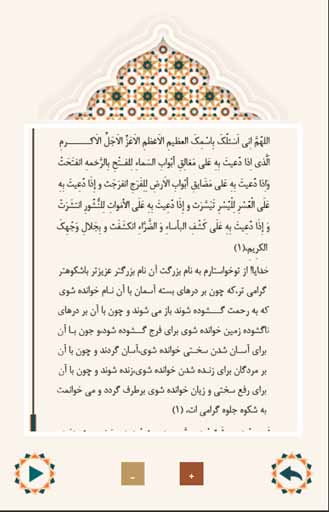 اللهمَّ انی اَسـئلُکَ بِاسْمِکَ العظیمِ الاَعْظمِ الاَعَزِّ الاَجَلِّ الاَکـــــرمِ
الَّذی اذا دُعیتَ بِهِ عَلی مَغالِقِ أبْوابِ السَماءِ لِلفَـتْحِ بِالرَّحمةِ انفَتَحَتْ
وَاذا دُعیتَ بِهِ عَلی مَضایقِ أبْوابِ الاَرضِ لِلفَرَجِ انفَرَجَتْ و إذا دُعیتَ بِهِ
عَلَی العُسْرِ لِلْیُسْرِ تَیَسَّرَتْ و إذا دُعیتَ بِهِ عَلَی الأَمْواتِ لِلنُّشُورِ انتَشَرَتْ
وَ إذا دُعیتَ بِهِ عَلَی کَشْفِ البأساءِ وَ الضَّرَّاءِ انکَشَفَتْ و بِجَلالِ وَجْهِکَ
الکریمِ.(۱)
خدایا! از توخواستارم به نام بزرگت آن نام بزرگتر عزیزتر باشکوهتر
گرامی تر،که چون بر درهای بسته آسمان با آن نـام خوانده شوی
که به رحمت گـــشوده شوند باز می شوند و چون با آن بر درهای
ناگشوده زمین خوانده شوی برای فرج گـشوده شود،و جون بـا آن
برای آسـان شدن سخـتی خوانده شوی،آسان گردند و چون با آن
بر مردگان برای زنـده شدن خوانده شوی،زنده شوند و چون با آن
برای رفع سختی و زیان خوانده شوی برطرف گردد و می خوانمت
به شکوه جلوه گرامی ات، (۱)
-
+